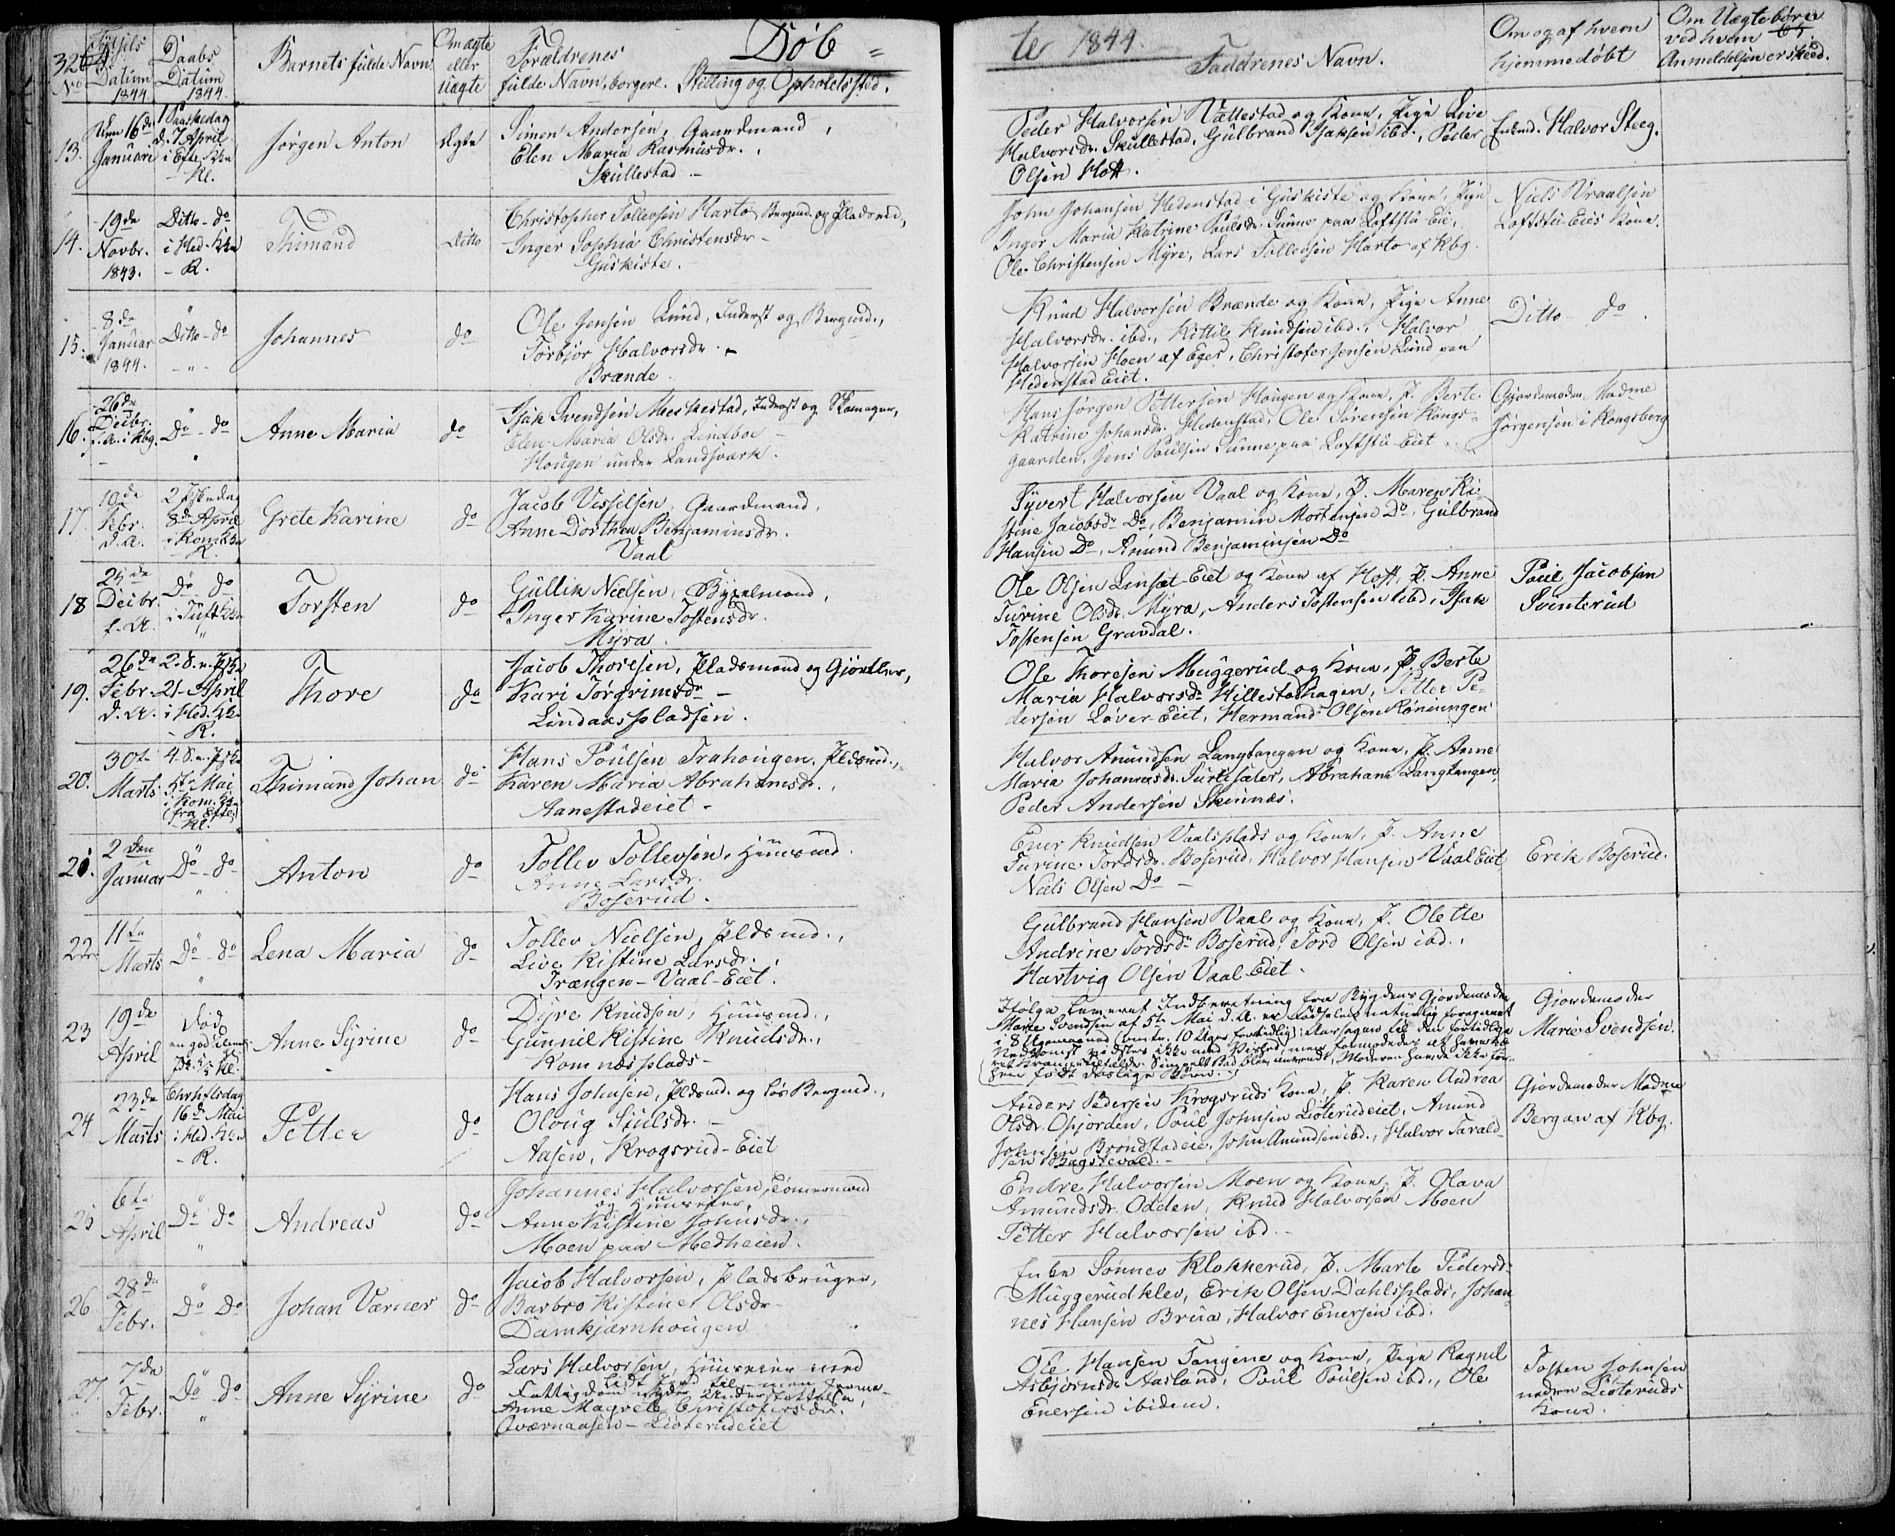 Døb = te 1844.
326
No
Fødsels Datum 1844
Daabs Datum 1844.
Barnets fulde Navn
Om ægte eller uægte
Forældrenes fulde Navn, borgerl. Stilling og Opholdssted.
Faddrenes Navn.
Om og af hvem hjemmedøbt
Om Uægte børn ved hvem Anmeldelsen er skeed.
13.
16de Januari
1 Paaskedag
d. 7 April
i Efte. Kke
Kl.
Jørgen Anton
Ægte
Simen Andersen, Gaardmand,
Elen Maria Rasmusdr.,
Skullestad -
Peder Halvorsen Vællestad og Kone, Pige Live
Halvorsdr. Skullestad, Gulbrand Isaksen ibd., Peder
Olsen Hoff.
Halvor Steeg.
14.
19de
Novbr.
1843.
Ditto - do
i Hed. Kke
- K.
Thimand
Ditto
Christopher Tollevsen Harto, Bergmd. og Pladsmd,
Inger Sophia Christensdr -
Guskiste.
John Johansen Hedenstad i Guskiste og Kone, Pige
Inger Maria Katrine Poulsdr. Sunne paa Loftstu Eie,
Ole Christensen Myre, Lars Tollevsen Harto af Kbg.
Niels Vraalsen
Loftstu-Eies Kone.
15.
8de
Januar
1844.
Ditto - do
Johannes
do
Ole Jensen Lund, Inderst og Bergmd.,
Torbjør Halvorsdr. -
Brænde
Knud Halvorsen Brænde og Kone, Pige Anne
Halvorsdr. ibd., Kittil Knudsen ibd., Halvor
Halvorsen Hoen af Eger, Christofer Jensen Lund paa
Hedenstad Eiet.
Ditto do.
16.
26de
Decbr.
f. A. i Kbg.
Do - do
Anne Maria
do
Isak Svendsen Meeskestad, Inderst og Skomager,
Elen Maria Olsdr. Lindboe -
Hougen under Landsværk.
Hans Jørgen Pettersen Hougen og Kone, P. Berte
Katrine Johansdr. Hedenstad, Ole Sørensen Kongs-
gaarden, Jens Poulsen Sunne paa Loftstu Eiet.
Gjordemoder Madme
Jørgensen i Kongsberg
17.
10de
Febr.
d. A.
2 Paaskedag
8de April
i Komn. Kke
K.
Grete Karine
do
Jacob Visselsen, Gaardmand,
Anne Dorthea Benjaminsdr.
Vaal
Syvert Halvorsen Vaal og Kone, P. Maren Ki-
stine Jacobsdr. Do, Benjamin Mortensen Do, Gulbrand
Hansen Do, Amund Benjaminsen Do
18
25de
Decbr.
f. A.
Do - do
i Tuft Kke
Torsten
do
Gullik Nielsen, Bygselmand,
Inger Karine Tostensdr.
Myra
Ole Olsen Linset-Eiet og Kone af Hoff, P. Anne
Turine Olsdr. Myra, Anders Tostensen ibd, Isak
Tostensen Gravdal.
Poul Jacobsen
Svenserud
19.
26de
Febr.
d. A.
2. S. e. Pske
21 April
i Hed. Kke
- K.
Thore
do
Jacob Thoresen, Pladsmand og Gjørtler,
Kari Torgrimsdr -
Lindaaspladsen.
Ole Thoresen Muggerud og Kone, P. Berte
Maria Halvorsdr. Hillestadhagen, Petter Pe-
dersen Løver Eiet, Hermand Olsen Køningen
20.
30te
Marts
4. S. e. Pske
5te Mai
i Kom. Kke
(fra Efte)
Kl.
Thimand Johan
do
Hans Poulsen Trahougen, Pldsmd.,
Karen Maria Abrahamsdr.,
Aanestadeiet -
Halvor Amundsen Langtangen og Kone, P. Anne
Maria Johannesdr. Turisæter, Abraham Langtangen,
Peder Andersen Skinnæs.
21.
2den
Januar
Do - do
Anton
do
Tollev Tollevsen, Huusmd.
Anne Larsdr.
Boserud.
Ener Knudsen Vaalsplads og Kone, P. Anne
Turine Tordsdr. Boserud, Halvor Hansen Vaal Eiet
Niels Olsen Do -
Erik Boserud.
22.
11te
Marts
Do - do
Lena Maria
do
Tollev Nielsen, Pldsmd.,
Live Kistine Larsdr.,
Trængen - Vaal-Eiet.
Gulbrand Hansen Vaal og Kone, P. Olette
Andrine Tordsdr. Boserud, Tord Olsen ibd.,
Hartvig Olsen Vaal-Eiet.
23
19de
April
Død
en god Time
Anne Syrine
do
Dyre Knudsen, Huusmd.,
Gunnil Kistine Knudsdr.,
Komnæsplads -
Ifølge Indberetning fra Bygdens Gjordemoder
Marie Svendsen af 5te Mai d. A. er Fødselen naturlig foregaaet
i 8 Ugemaaned (omtr. 10 Uger fortidlig); Aarsagen til den fortidlige
Nedkomst vidstes ikke med Vished, men formodedes at have
Moderen havde ikke før-
hen født dødslige Børn.
Gjordemoder
Marie Svendsen.
24
23de
Marts
Chr. Hflsdag
16de Mai
i Hed. Kke
- K.
Petter
do
Hans Johnsen, Pldsmd. og løs Bergmd.,
Oloug Siulsdr. -
Aasen, Krogsrud-Eiet
Anders Pedersen Krogsruds Kone, P. Karen Andrea
Olsdr. Opjorden, Poul Johnsen Lioterudeiet, Amund
Johnsen Brøndstadeie, John Amundsen ibd., Halvor Tarald-
sen Bagstevold. -
Gjordemoder Madme
Bergan af Kbg.
25
6te
April
Do do
Andreas
do
Johannes Halvorsen, Tømmermand
og Huuseier,
Anne Kistine Johnsdr.,
Moen paa Medheien.
Endre Halvorsen Moen og Kone, P. Olava
Amundsdr. Odden, Knud Halvorsen Moen
Petter Halvorsen ibd. -
26
28de
Febr.
Do Do
Johan Værner
do
Jacob Halvorsen, Pladsbruger,
Barbro Kistine Olsdr -
Damkjærnhougen
Enke Sønnev Klokkerud, P. Marte Pedersdr.
Muggerudklev, Erik Olsen Dahlsplads, Johan-
nes Hansen Brua, Halvor Enersen ibd.
27.
7de
Febr.
Do do
Anne Syrine
do
Lars Halvorsen, Huuseier med
lidt Jord til - men formed.
Fattigdom nyder Understøttelse,
Anne Magrete Christofersdr.,
Qværnaasen - Lioterudeiet
Ole Hansen Tangene og Kone, Pige Ragnil
Asbjørnsdr. Aasland, Poul Poulsen ibd., Ole
Enersen ibidem.
Tosten Johnsen
nedre Lioteruds
Kone.